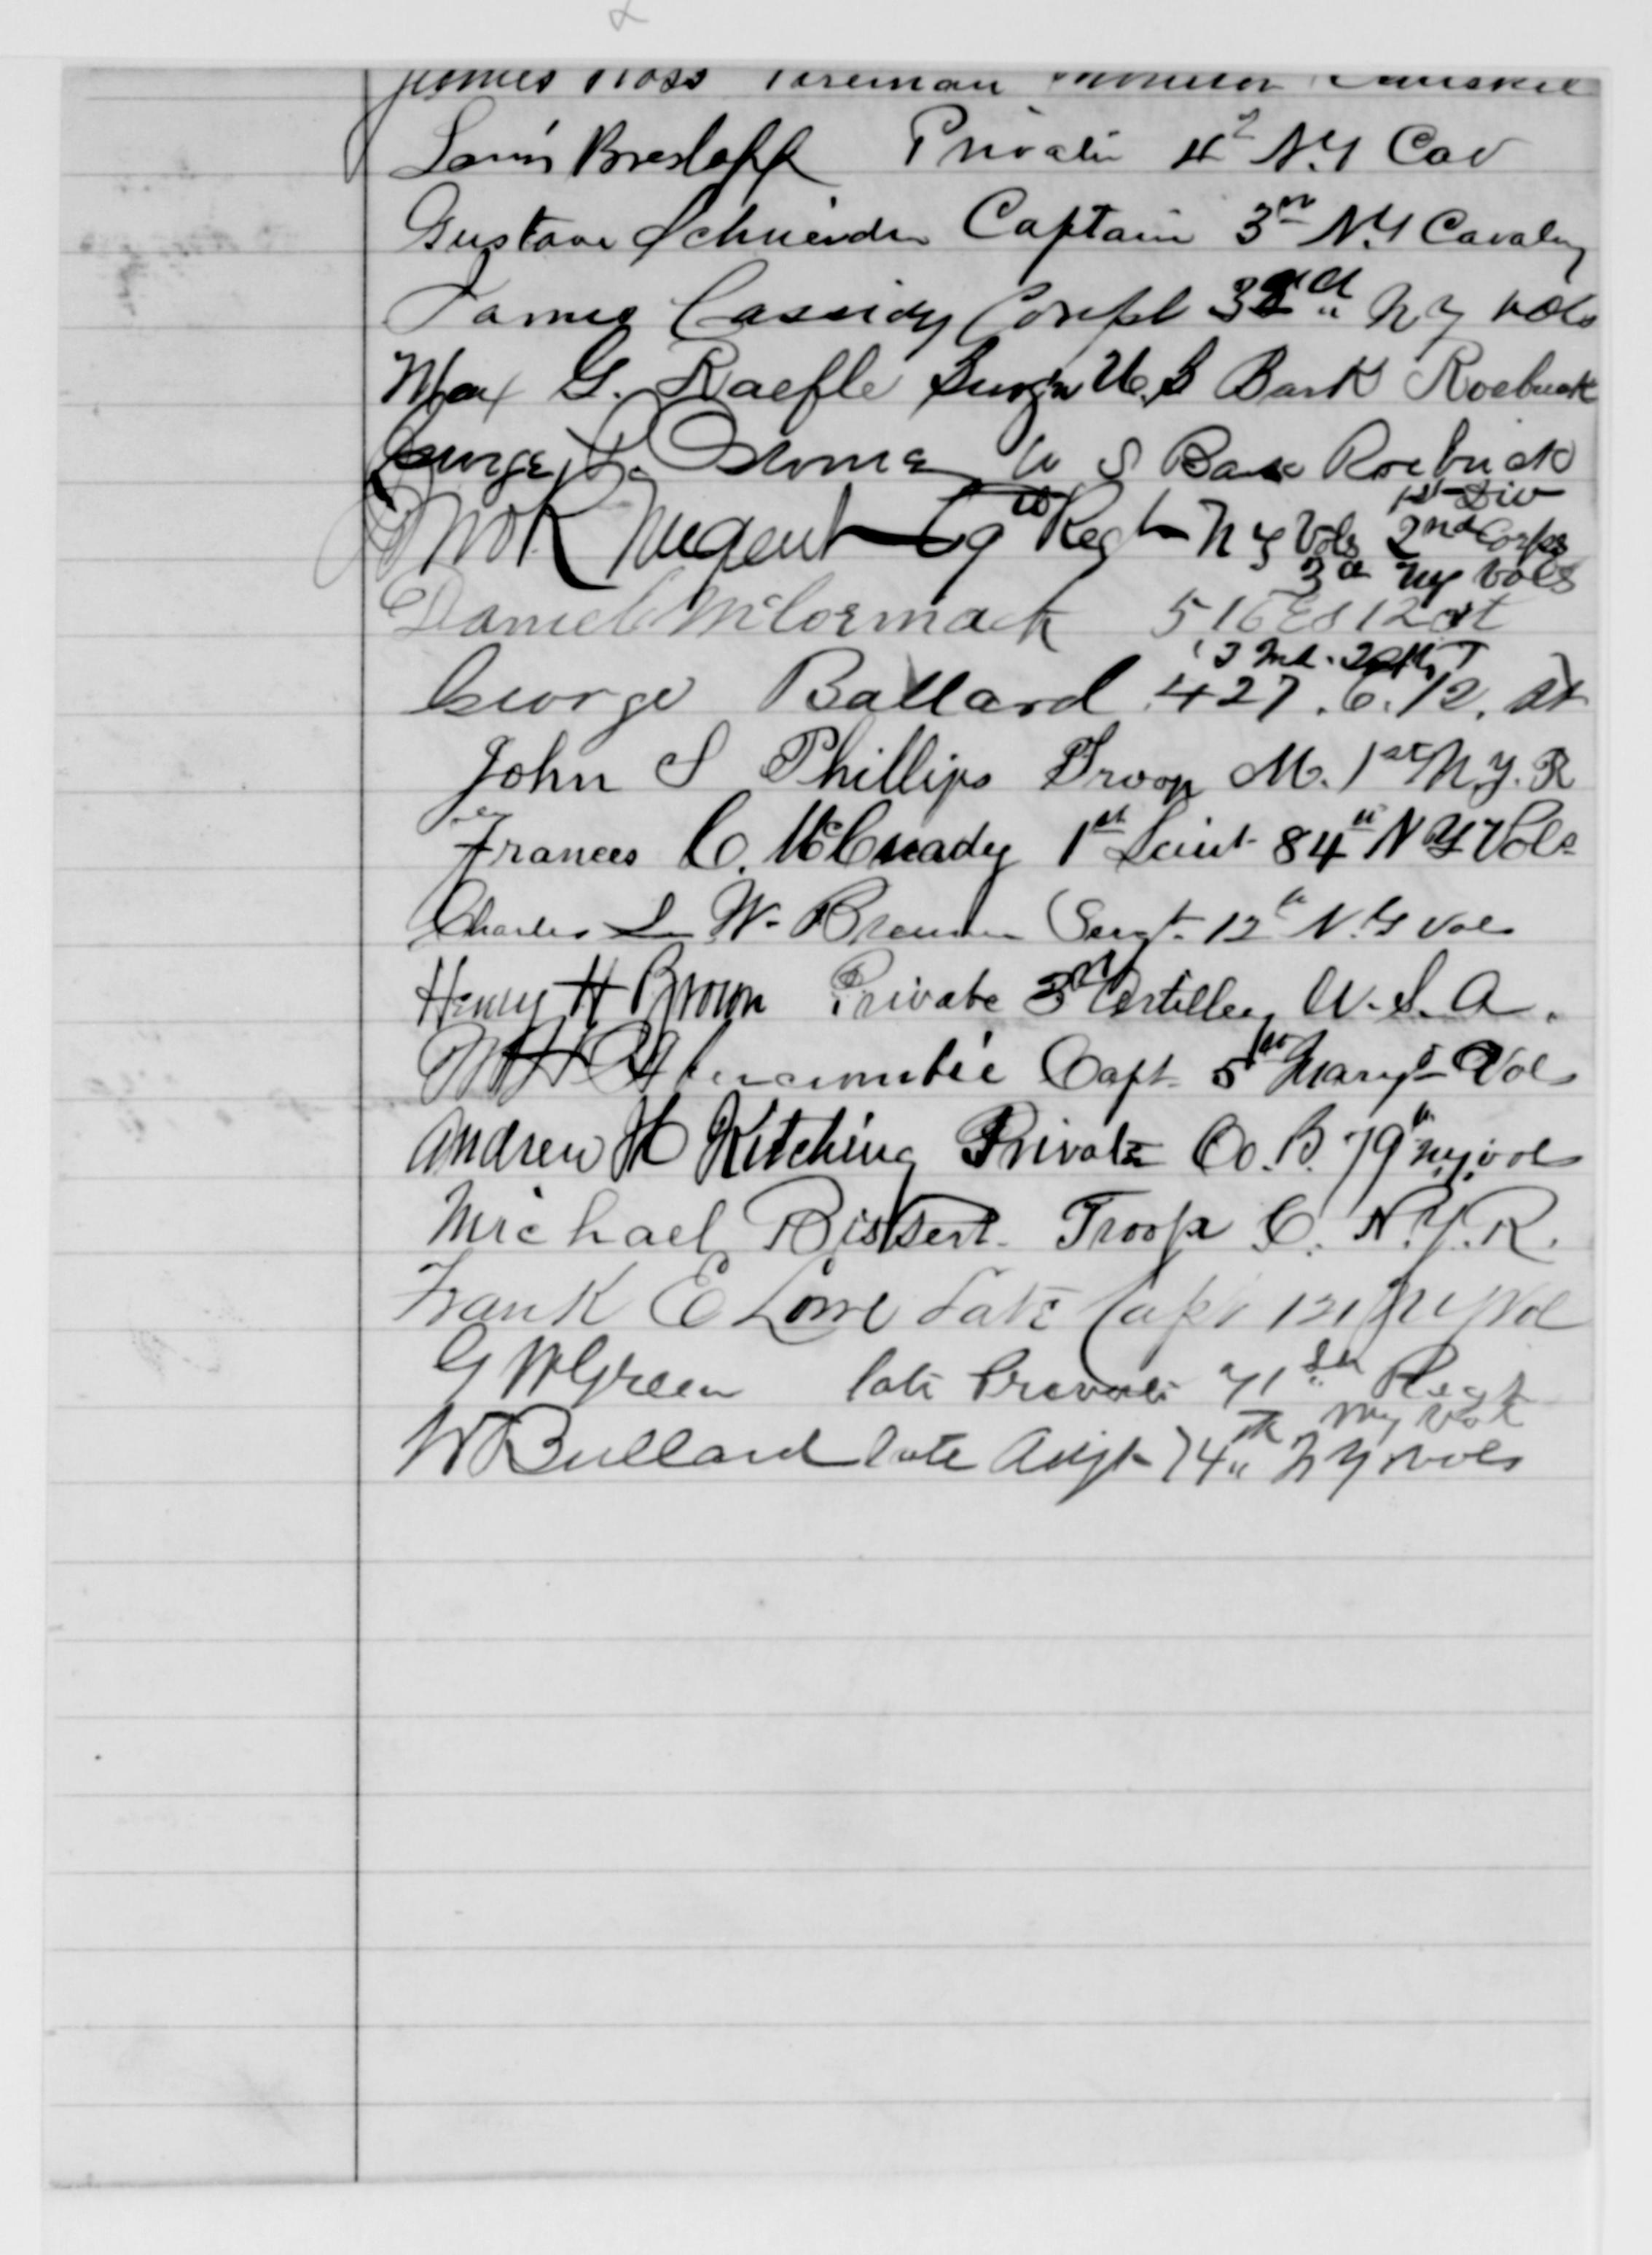 James Ross Foreman
Louis Private 4 N.Y Cav
Gustave Schneider Captain 3rd N.Y Cavalry
James Cassidy Corpl 32nd N Y Vols
Max G. Raefle Surgn U.S Bark Roebuck
George U S Bark Roebuck
Nugent 69th Regt N Y Vols 1st Div 2nd Corps
3d NY Vols
Daniel McCormack 516 Es 12 st
George Ballard 427. E. 12. St
John S Phillips Troop M. 1st N.Y. R
Frances C. McCready 1st Lieut 84th N Y Vols
Charles W. Sergt 12th N.Y Vols
Henry H Brown Private 3rd Artillery U.S.A.
Abercrombie Capt 5th Maryd Vols
Andrew H Kitching Private Co. B. 79th N.Y. Vols
Michael Troop C. N.Y.R.
Frank E Lowe Late Capt 121 N Y Vol
G W Green late Private 71st Regt
NY Vol
W Bullard late Adjt 74th N Y Vols